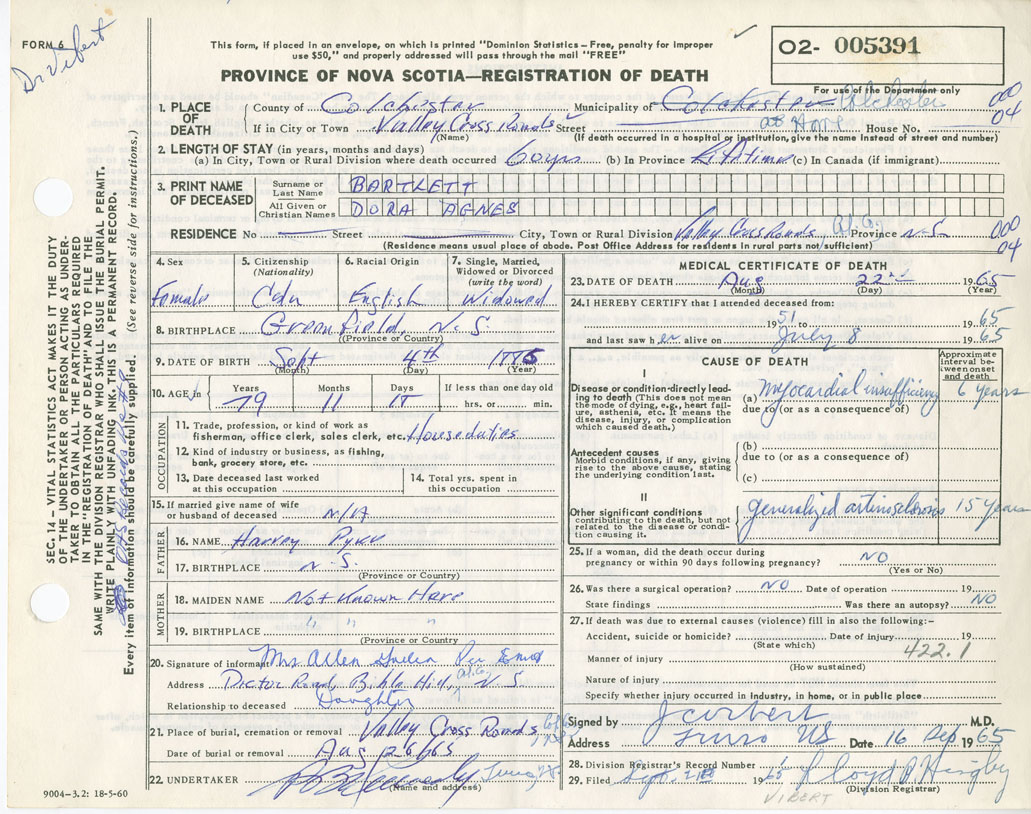 FORM 6
Dr Vibert
This form, if placed in an envelope, on which is printed "Dominion Statistics—Free, penalty for improper
use $50," and properly addressed will pass through the mail "FREE"
PROVINCE OF NOVA SCOTIA—REGISTRATION OF DEATH
02- 005391
For use of the Department only
1. PLACE OF DEATH
County of Colchester Municipality of Colchester Colchester 000 04
If in City or Town Valley Cross Roads Street House No.
(Name) (If death occurred in a hospital or institution, give the name instead of street and number)
2. LENGTH OF STAY (in years, months and days)
(a) In City, Town or Rural Division where death occurred 60 yrs (b) In Province Lifetime (c) In Canada (if immigrant)
3. PRINT NAME OF DECEASED
Surname or Last Name BARTLETT
All Given or Christian Names DORA AGNES
RESIDENCE No Street City, Town or Rural Division Valley Cross Roads Province N.S. 000 04
(Residence means usual place of abode. Post Office Address for residents in rural parts not sufficient)
4. Sex
Female
5. Citizenship
(Nationality)
Cdn
6. Racial Origin
English
7. Single, Married,
Widowed or Divorced
(write the word)
Widowed
8. BIRTHPLACE Greenfield, N.S.
(Province or Country)
9. DATE OF BIRTH Sept 4th
(Month) (Day) (Year)
10. AGE in Years Months Days If less than one day old
79 11 hrs. or min.
OCCUPATION
11. Trade, profession, or kind of work as
fisherman, office clerk, sales clerk, etc. Houseduties
12. Kind of industry or business, as fishing,
bank, grocery store, etc.
13. Date deceased last worked
at this occupation
14. Total yrs. spent in
this occupation
15. If married give name of wife
or husband of deceased N/A
FATHER
16. NAME Harvey
17. BIRTHPLACE N.S.
(Province or Country)
MOTHER
18. MAIDEN NAME Not Known Here
19. BIRTHPLACE " "
(Province or Country)
20. Signature of informant Mrs Allen
Address Road, Bible Hill, N.S.
Relationship to deceased Daughter
21. Place of burial, cremation or removal Valley Cross Roads
Date of burial or removal Aug 26/65
22. UNDERTAKER
(Name and address)
9004-3.2: 18-5-60
MEDICAL CERTIFICATE OF DEATH
23. DATE OF DEATH Aug 22nd 1965
(Month) (Day) (Year)
24. I HEREBY CERTIFY that I attended deceased from:
1951 to 1965
and last saw her alive on July 8 1965
CAUSE OF DEATH
Approximate
interval between
onset
and death
I
Disease or condition-directly leading
to death (This does not
mean the mode of dying, e.g., heart failure,
asthenia, etc. It means the
disease, injury, or complication
which caused death.)
(a) myocardial insufficiency 6 years
due to (or as a consequence of)
Antecedent causes
Morbid conditions, if any, giving
rise to the above cause, stating
the underlying condition last.
(b)
due to (or as a consequence of)
(c)
II
Other significant conditions
contributing to the death, but not
related to the disease or condition
causing it.
generalized arteriosclerosis 15 years
25. If a woman, did the death occur during
pregnancy or within 90 days following pregnancy? NO
(Yes or No)
26. Was there a surgical operation? NO Date of operation 19
State findings Was there an autopsy? NO
27. If death was due to external causes (violence) fill in also the following:-
Accident, suicide or homicide? Date of injury 19
(State which) 422.1
Manner of injury
(How sustained)
Nature of injury
Specify whether injury occurred in industry, in home, or in public place
Signed by M.D.
Address Truro NS Date 16 Sep 1965
28. Division Registrar's Record Number
29. Filed Sept. 1965 Floyd
(Division Registrar)
VIBERT
SEC. 14 – VITAL STATISTICS ACT MAKES IT THE DUTY
OF THE UNDERTAKER OR PERSON ACTING AS UNDERTAKER
TO OBTAIN ALL THE PARTICULARS REQUIRED
IN THE "REGISTRATION OF DEATH" AND TO FILE THE
SAME WITH THE DIVISION REGISTRAR WHO SHALL ISSUE THE BURIAL PERMIT.
WRITE PLAINLY WITH UNFADING INK-THIS IS A PERMANENT RECORD.
Every item of information should be carefully supplied. (See reverse side for instructions.)